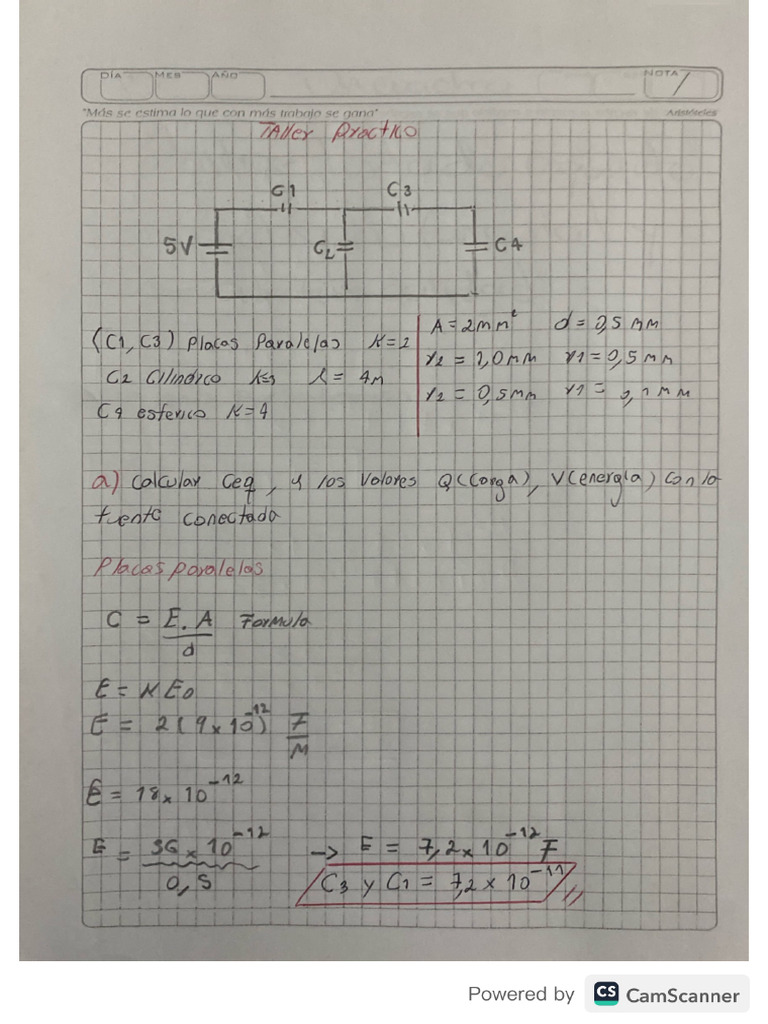 DÍA MES AÑO NOTA
"Más se estima lo que con más trabajo se gana" Aristóteles
Taller Practico
C1 C3
5V C2 C4
(C1, C3) Placas Paralelas K=2
C2 Cilindico K=3 l = 4m
C4 esferico K=4
A = 2mm² d = 0,5 mm
r2 = 1,0 mm r1 = 0,5 mm
r2 = 0,5 mm r1 = 0,1 mm
a) Calcular Ceq, y los Valores Q(Carga), V(energia) Con la
fuente conectada
Placas paralelas
C = E. A Formula
d
E = K Eo
E = 2(9x10⁻¹²) F
M
E = 18x10⁻¹²
E = 36 x 10⁻¹² -> E = 7,2x10⁻¹² F
0,5
C3 y C1 = 7,2 x 10⁻¹¹
Powered by CS CamScanner